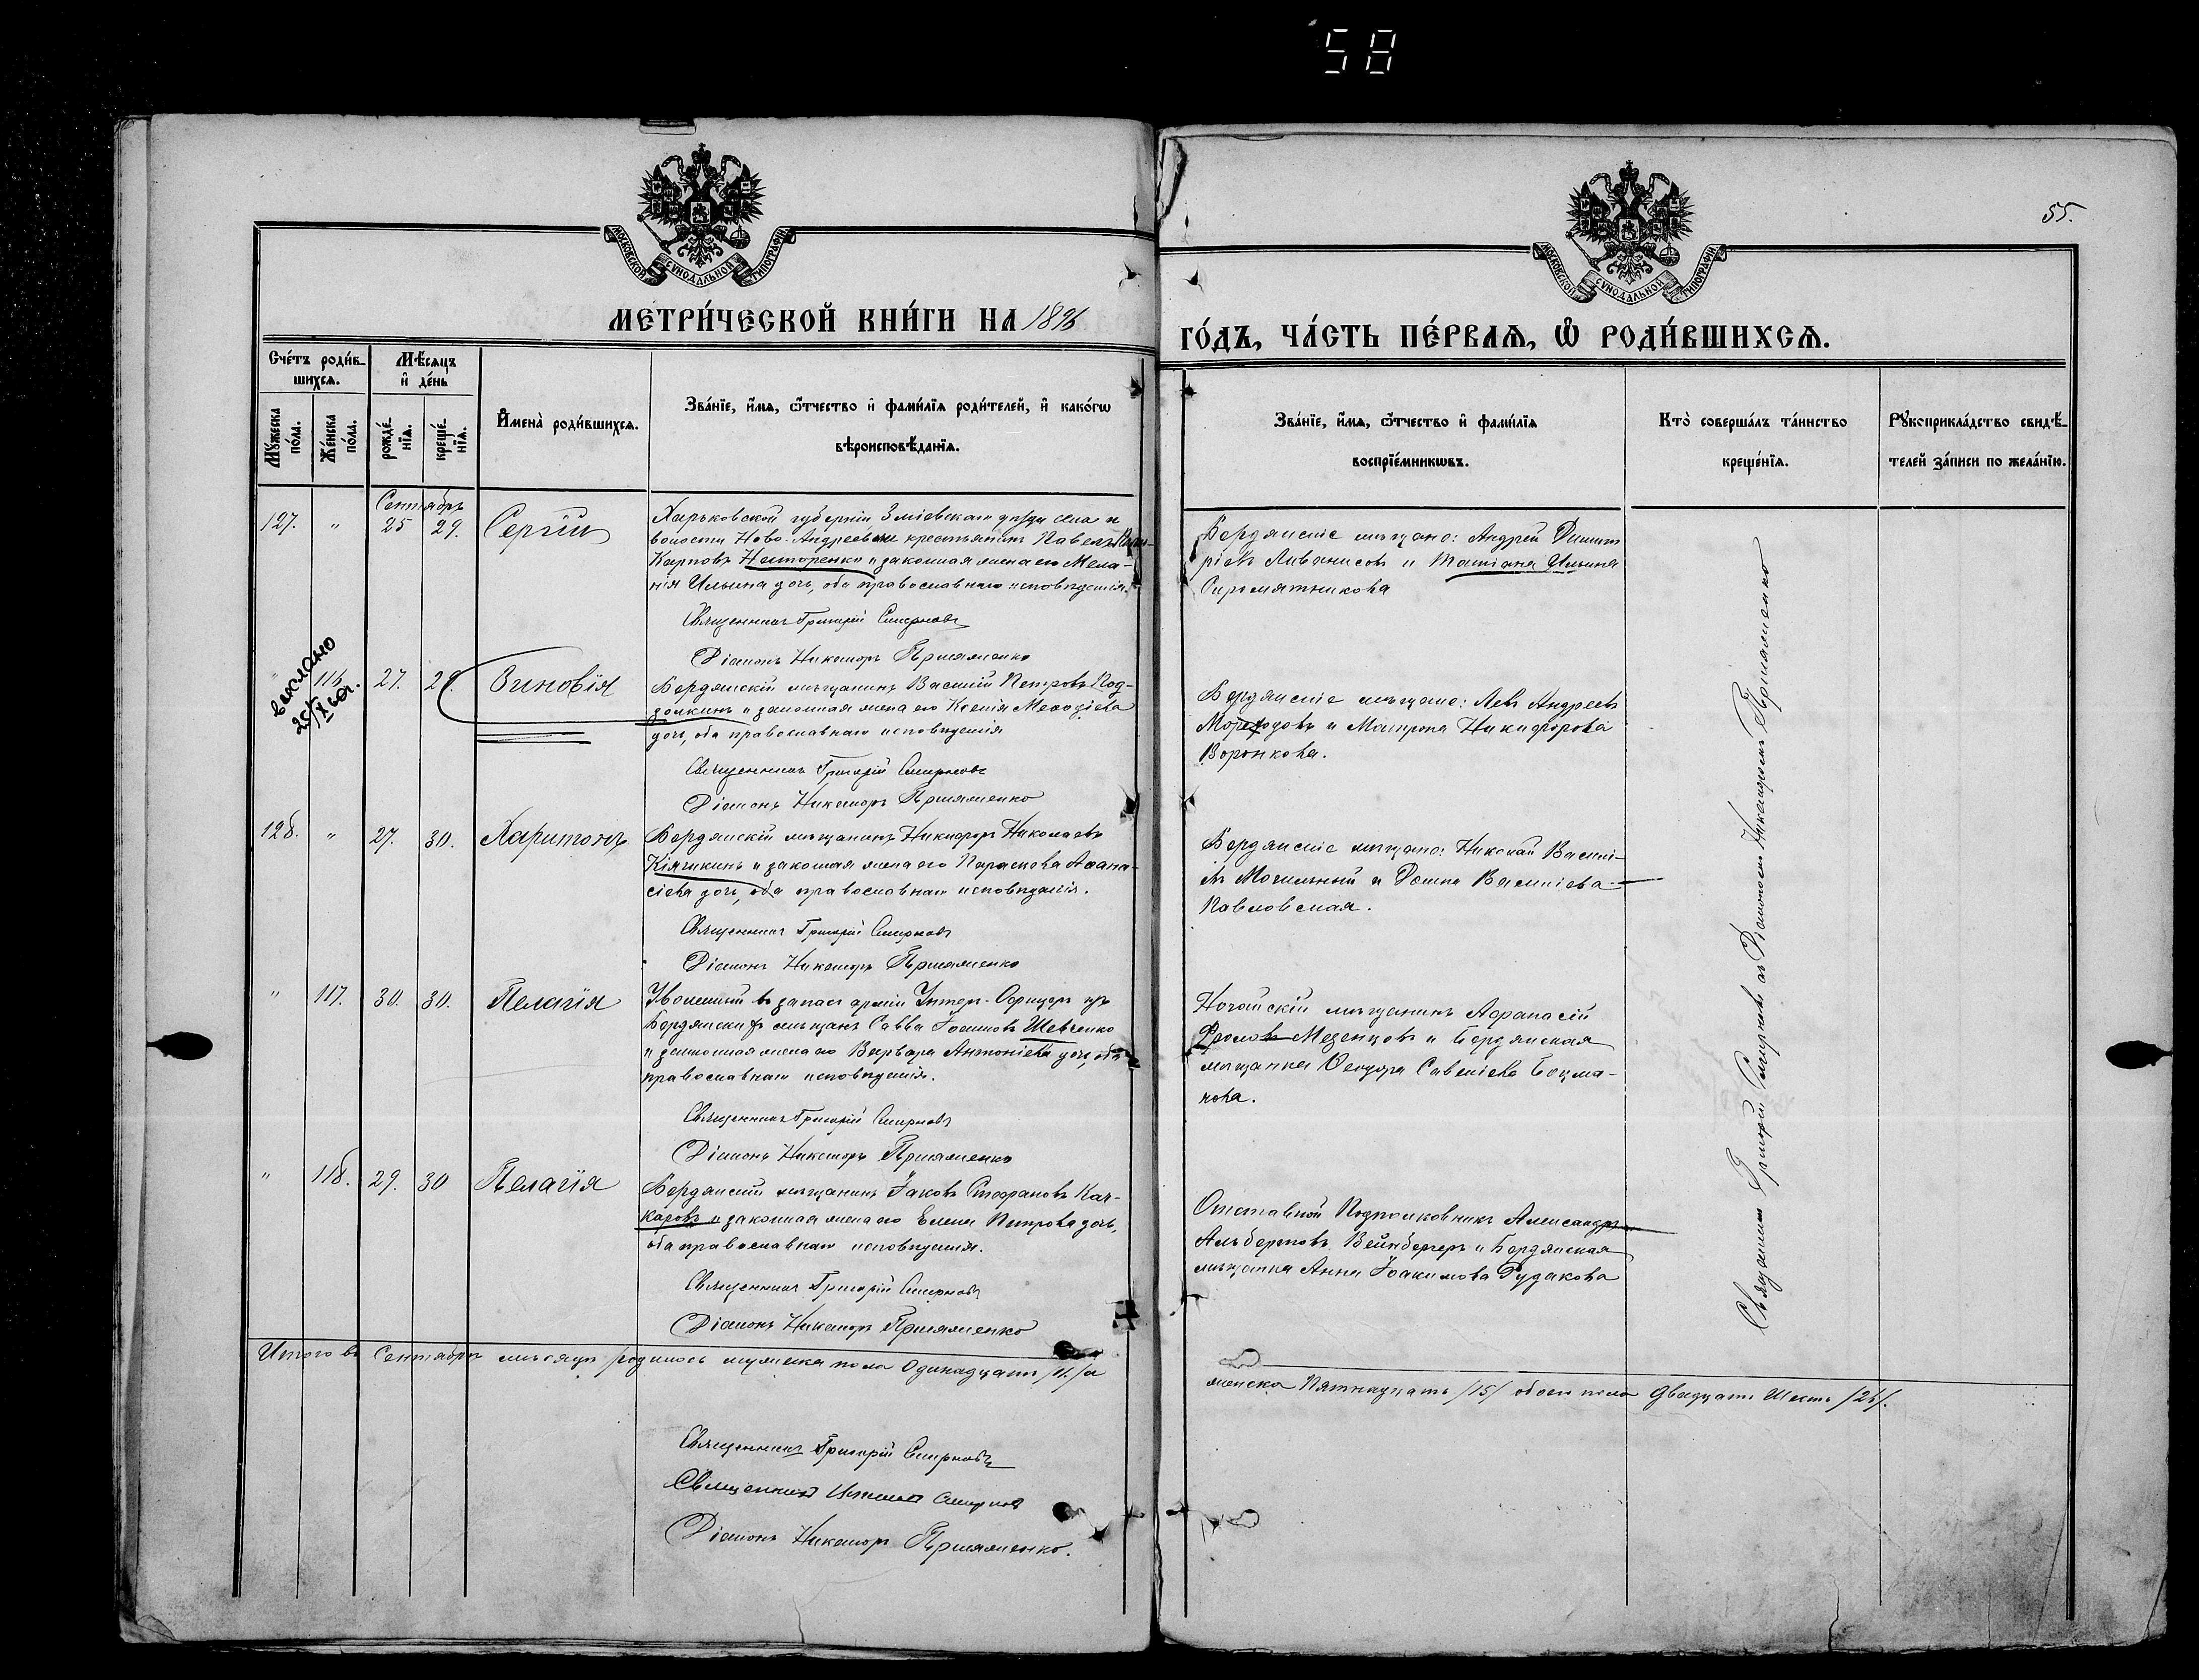 58
55.
МОСКОВСКОЙ СѴНОДАЛЬНОЙ ТИПОГРАФІИ
МОСКОВСКОЙ СѴНОДАЛЬНОЙ ТИПОГРАФІИ
МЕТРИ́ЧЕСКОЙ КНИ́ГИ НА 1896
ГО́ДЪ, ЧА́СТЬ ПЕ́РВАѦ, Ѽ РОДИ́ВШИХСѦ.
Сче́тъ роди́в-
шихсѧ.
Мѣ́сѧцъ
и҆ де́нь
Мꙋ́жеска
по́ла.
Же́нска
по́ла.
рожде́-
нїѧ.
креще́-
нїѧ.
И҆мена̀ роди́вшихсѧ.
Зва́нїе, и҆́мѧ, ѻ҆́тчество и҆ фами́лїѧ роди́телей, и҆ како́гѡ
вѣроисповѣ́данїѧ.
Зва́нїе, и҆́мѧ, ѻ҆́тчество и҆ фами́лїѧ
воспрїе́мникѡвъ.
Кто̀ соверша́лъ та́инство
креще́нїѧ.
Рꙋкоприкла́дство свидѣ́-
телей за́писи по жела́нїю.
Сентябрь
127. " 25 29. Сергій
Харьковской губерніи, Зміевскаго уѣзда села и
волости Ново-Андреевки крестьянинъ Павелъ
Карповъ Несторенко и законная жена его Мела-
нія Ильина дочь, оба православнаго исповѣданія.
Священникъ Григорій Смирновъ
Діаконъ Никаноръ Прияженко
Бердянскіе мѣщане: Андрей Димит
ріевъ Ливанисовъ и Татіана Ильина
Сиромятникова
выслано
" 116. 27. 29. Зиновія
Бердянскій мѣщанинъ Василій Петровъ Под-
золкинъ и законная жена его Ксенія Меѳодіева
дочь, оба православнаго исповѣданія
Священникъ Григорій Смирновъ
Діаконъ Никаноръ Прияженко
Бердянскіе мѣщане: Левъ Андреевъ
и Матрона Никифорова
Воронкова.
128. " 27. 30. Харитонъ
Бердянскій мѣщанинъ Никифоръ Николаевъ
Кіяшкинъ и законная жена его Параскева Аѳана-
сіева дочь, оба православнаго исповѣданія.
Священникъ Григорій Смирновъ
Діаконъ Никаноръ Прияженко
Бердянскіе мѣщане: Николай Василі-
евъ Могильный и Домна Василіева
Павловская.
" 117. 30. 30. Пелагія
Уволенный въ запасъ арміи Унтеръ-Офицеръ изъ
Бердянскихъ мѣщанъ Савва Іоанновъ Шевченко
и законная жена его Варвара Антоніева дочь, оба
православнаго исповѣданія.
Священникъ Григорій Смирновъ
Діаконъ Никаноръ Прияженко
Ногайскій мѣщанинъ Афанасій
Фроловъ Мезенцовъ и Бердянская
мѣщанка Ѳеодора Савеліева Боцма-
нова.
" 118. 29. 30 Пелагія
Бердянскій мѣщанинъ Іаковъ Стефановъ Кач-
каровъ и законная жена его Елена Петрова дочь,
оба православнаго исповѣданія.
Священникъ Григорій Смирновъ
Діаконъ Никаноръ Прияженко
Отставной Подполковникъ Александръ
Альбертовъ Вейнбергеръ и Бердянская
мѣщанка Анна Іоакимова Рудакова
Священникъ Григорій Смирновъ съ Діакономъ Никаноромъ Прияженко
Итого въ Сентябрѣ мѣсяцѣ родилось мужеска пола Одинадцать /11./ а
женска Пятнадцать /15/ обоего пола Двадцать Шесть /26/.
Священникъ Григорій Смирновъ
Священникъ Смирнов
Діаконъ Никаноръ Прияженко.